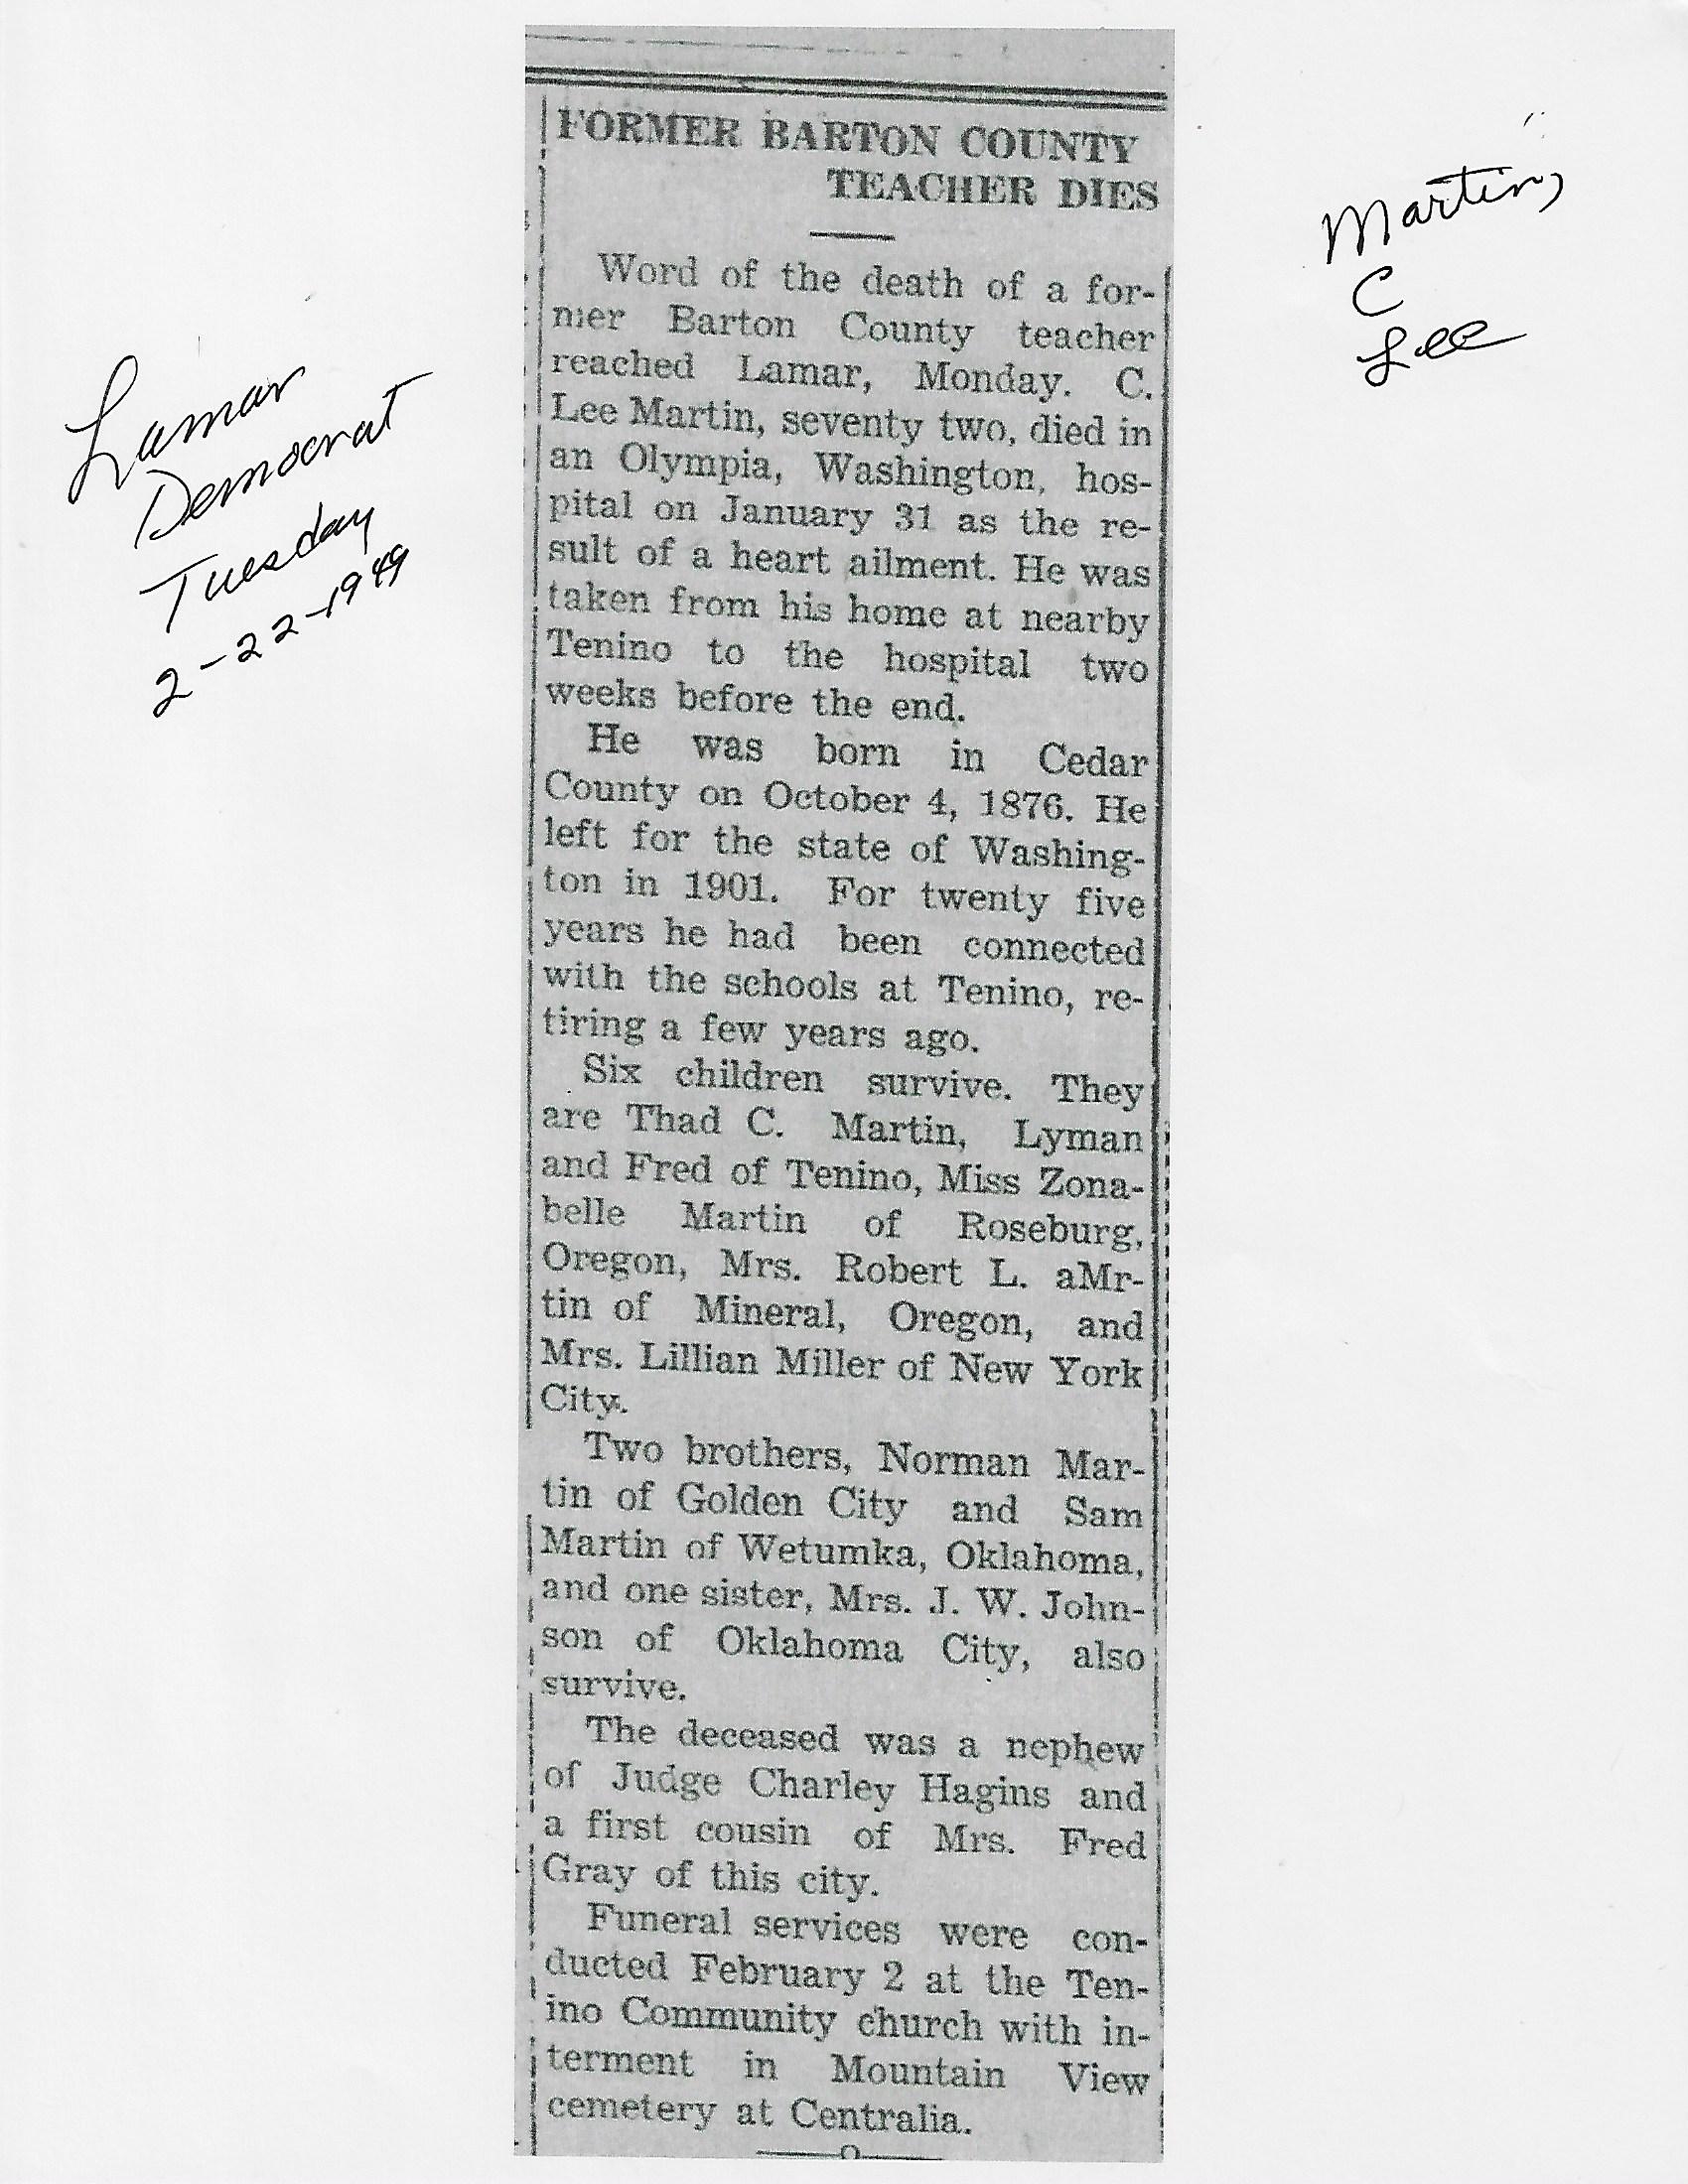 Lamar
Democrat
Tuesday
2-22-1949
Martin,
C
Lee
FORMER BARTON COUNTY
TEACHER DIES
Word of the death of a for-
mer Barton County teacher
reached Lamar, Monday. C.
Lee Martin, seventy two, died in
an Olympia, Washington, hos-
pital on January 31 as the re-
sult of a heart ailment. He was
taken from his home at nearby
Tenino to the hospital two
weeks before the end.
He was born in Cedar
County on October 4, 1876. He
left for the state of Washing-
ton in 1901. For twenty five
years he had been connected
with the schools at Tenino, re-
tiring a few years ago.
Six children survive. They
are Thad C. Martin, Lyman
and Fred of Tenino, Miss Zona-
belle Martin of Roseburg,
Oregon, Mrs. Robert L. aMr-
tin of Mineral, Oregon, and
Mrs. Lillian Miller of New York
City.
Two brothers, Norman Mar-
tin of Golden City and Sam
Martin of Wetumka, Oklahoma,
and one sister, Mrs. J. W. John-
son of Oklahoma City, also
survive.
The deceased was a nephew
of Judge Charley Hagins and
a first cousin of Mrs. Fred
Gray of this city.
Funeral services were con-
ducted February 2 at the Ten-
ino Community church with in-
terment in Mountain View
cemetery at Centralia.